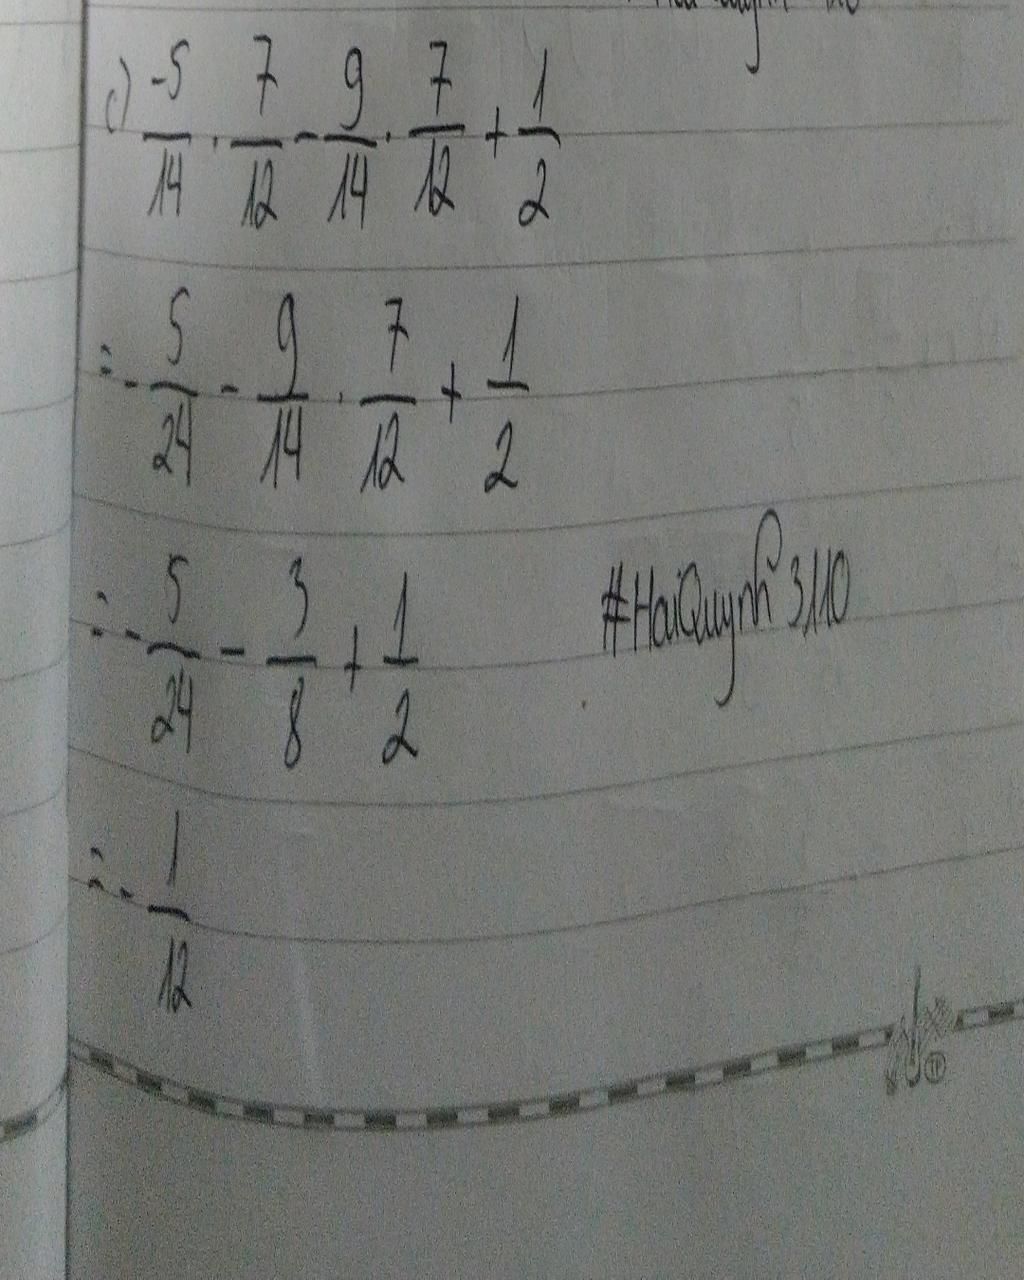 c) -5/14 . 7/12 - 9/14 . 7/12 + 1/2
= - 5/24 - 9/14 . 7/12 + 1/2
= - 5/24 - 3/8 + 1/2
#HaiQuynh3110
= - 1/12